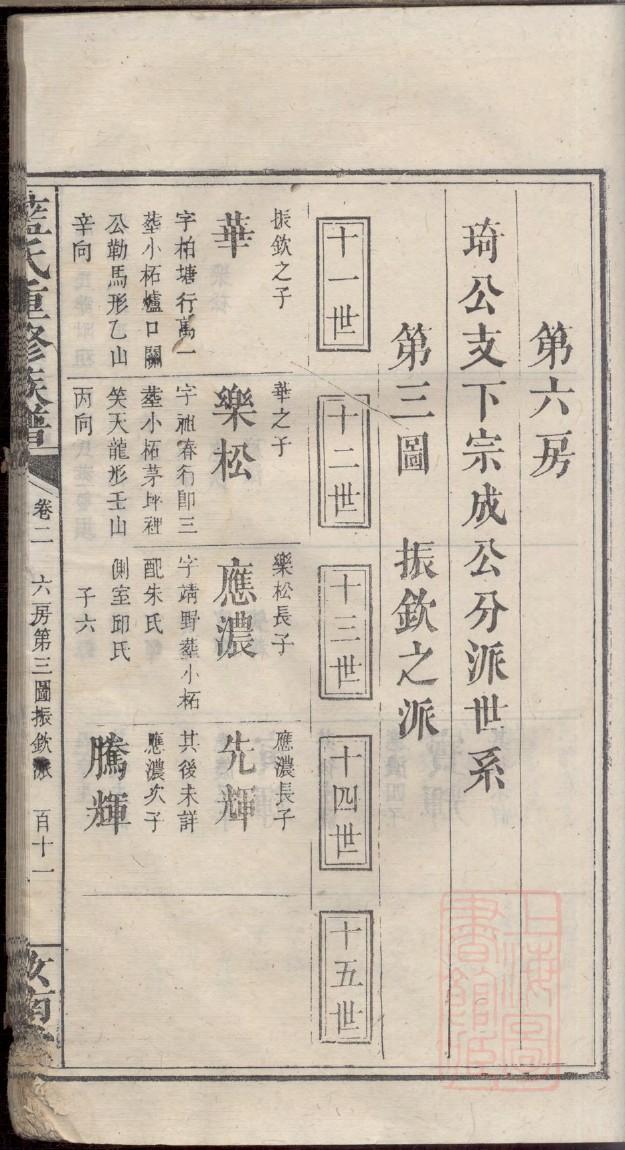 第六房
琦公支下宗成公分派世系
第三圖 振欽之派
十一世
十二世
十三世
十四世
十五世
振欽之子
華
字柏塘行萬一
塟小柘爐口關
公勒馬形乙山
辛向
華之子
樂松
字祖春行郎三
塟小柘茅坪裡
笑天龍形壬山
丙向
樂松長子
應濃
字靖野塟小柘
配朱氏
側室邱氏
子六
應濃長子
先輝
其後未詳
應濃次子
騰輝
藍氏重修族譜
卷二
六房第三圖振欽派
百十一
汝南堂
上海圖書館藏